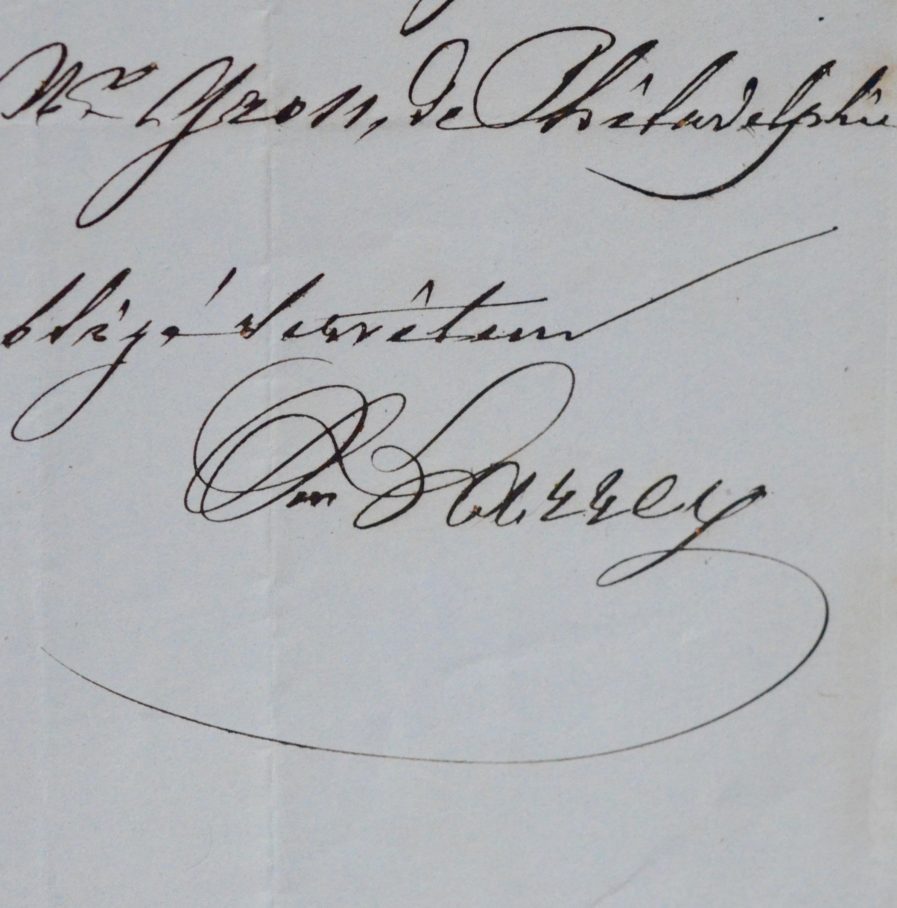 Mr Gross, de Philadelphie
bligé serviteur
Bon Larrey